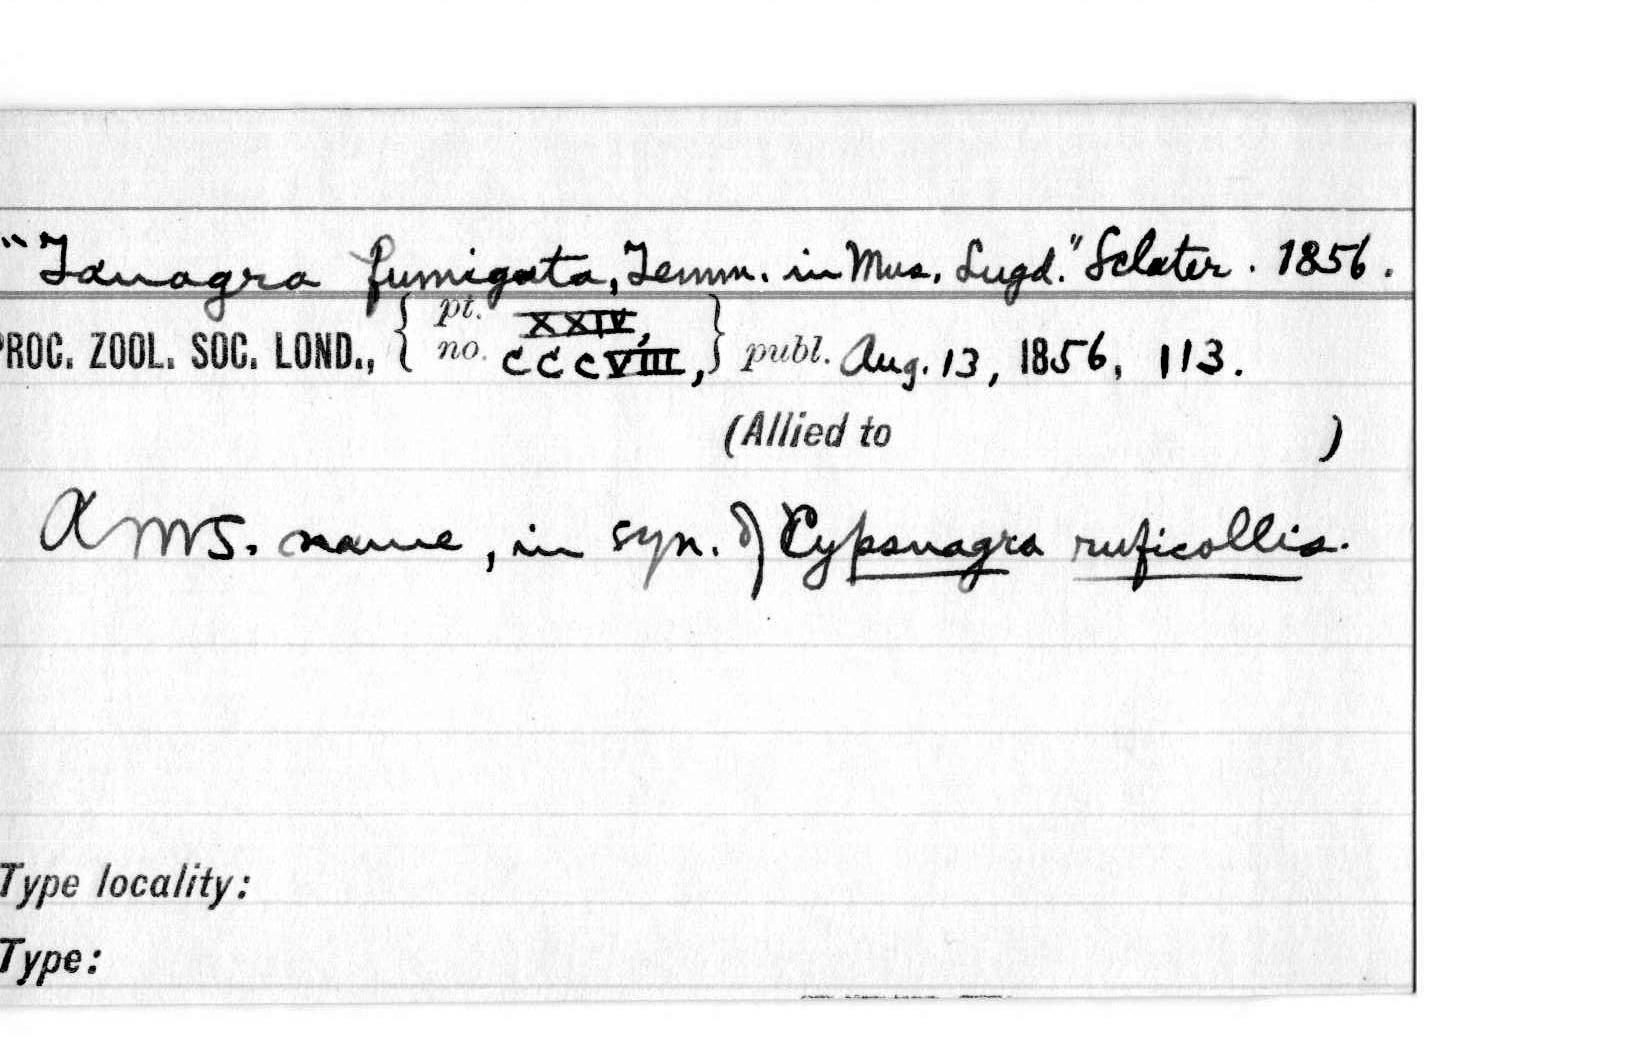 "Tanagra fumigata, Temm. in Mus. Lugd." Sclater. 1856.
PROC. ZOOL. SOC. LOND., { pt. XXIV, no. CCCVIII, } publ. Aug. 13, 1856, 113.
(Allied to )
A MS. name, in syn. of Cypsnagra ruficollis.
Type locality:
Type: